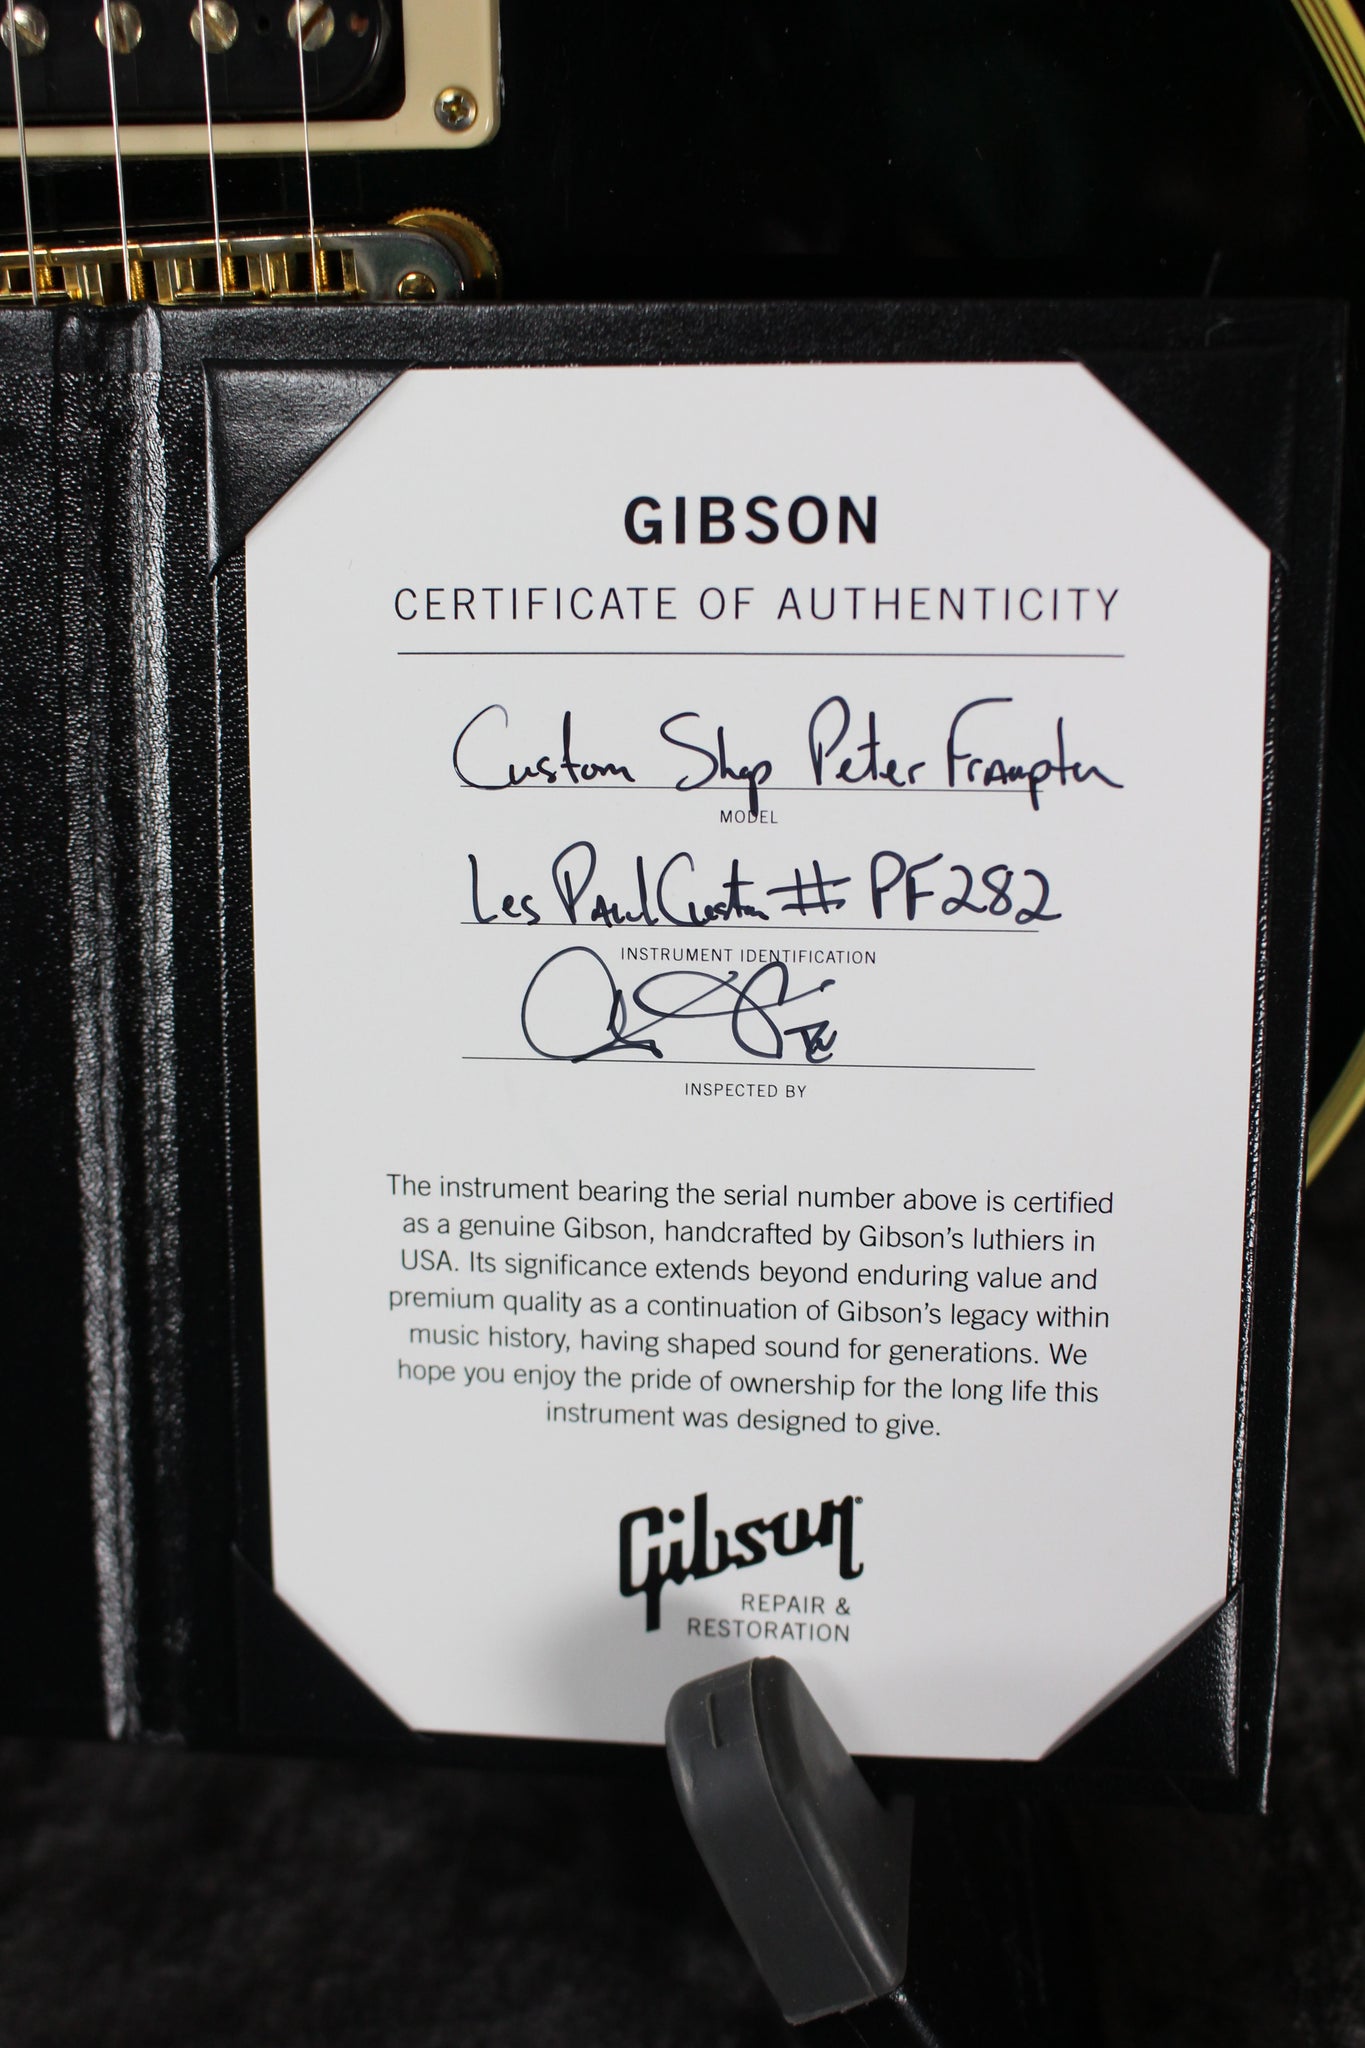 GIBSON
CERTIFICATE OF AUTHENTICITY
Custom Shop Peter Frampton
MODEL
Les Paul Custom # PF282
INSTRUMENT IDENTIFICATION
INSPECTED BY
The instrument bearing the serial number above is certified
as a genuine Gibson, handcrafted by Gibson's luthiers in
USA. Its significance extends beyond enduring value and
premium quality as a continuation of Gibson's legacy within
music history, having shaped sound for generations. We
hope you enjoy the pride of ownership for the long life this
instrument was designed to give.
Gibson
REPAIR &
RESTORATION